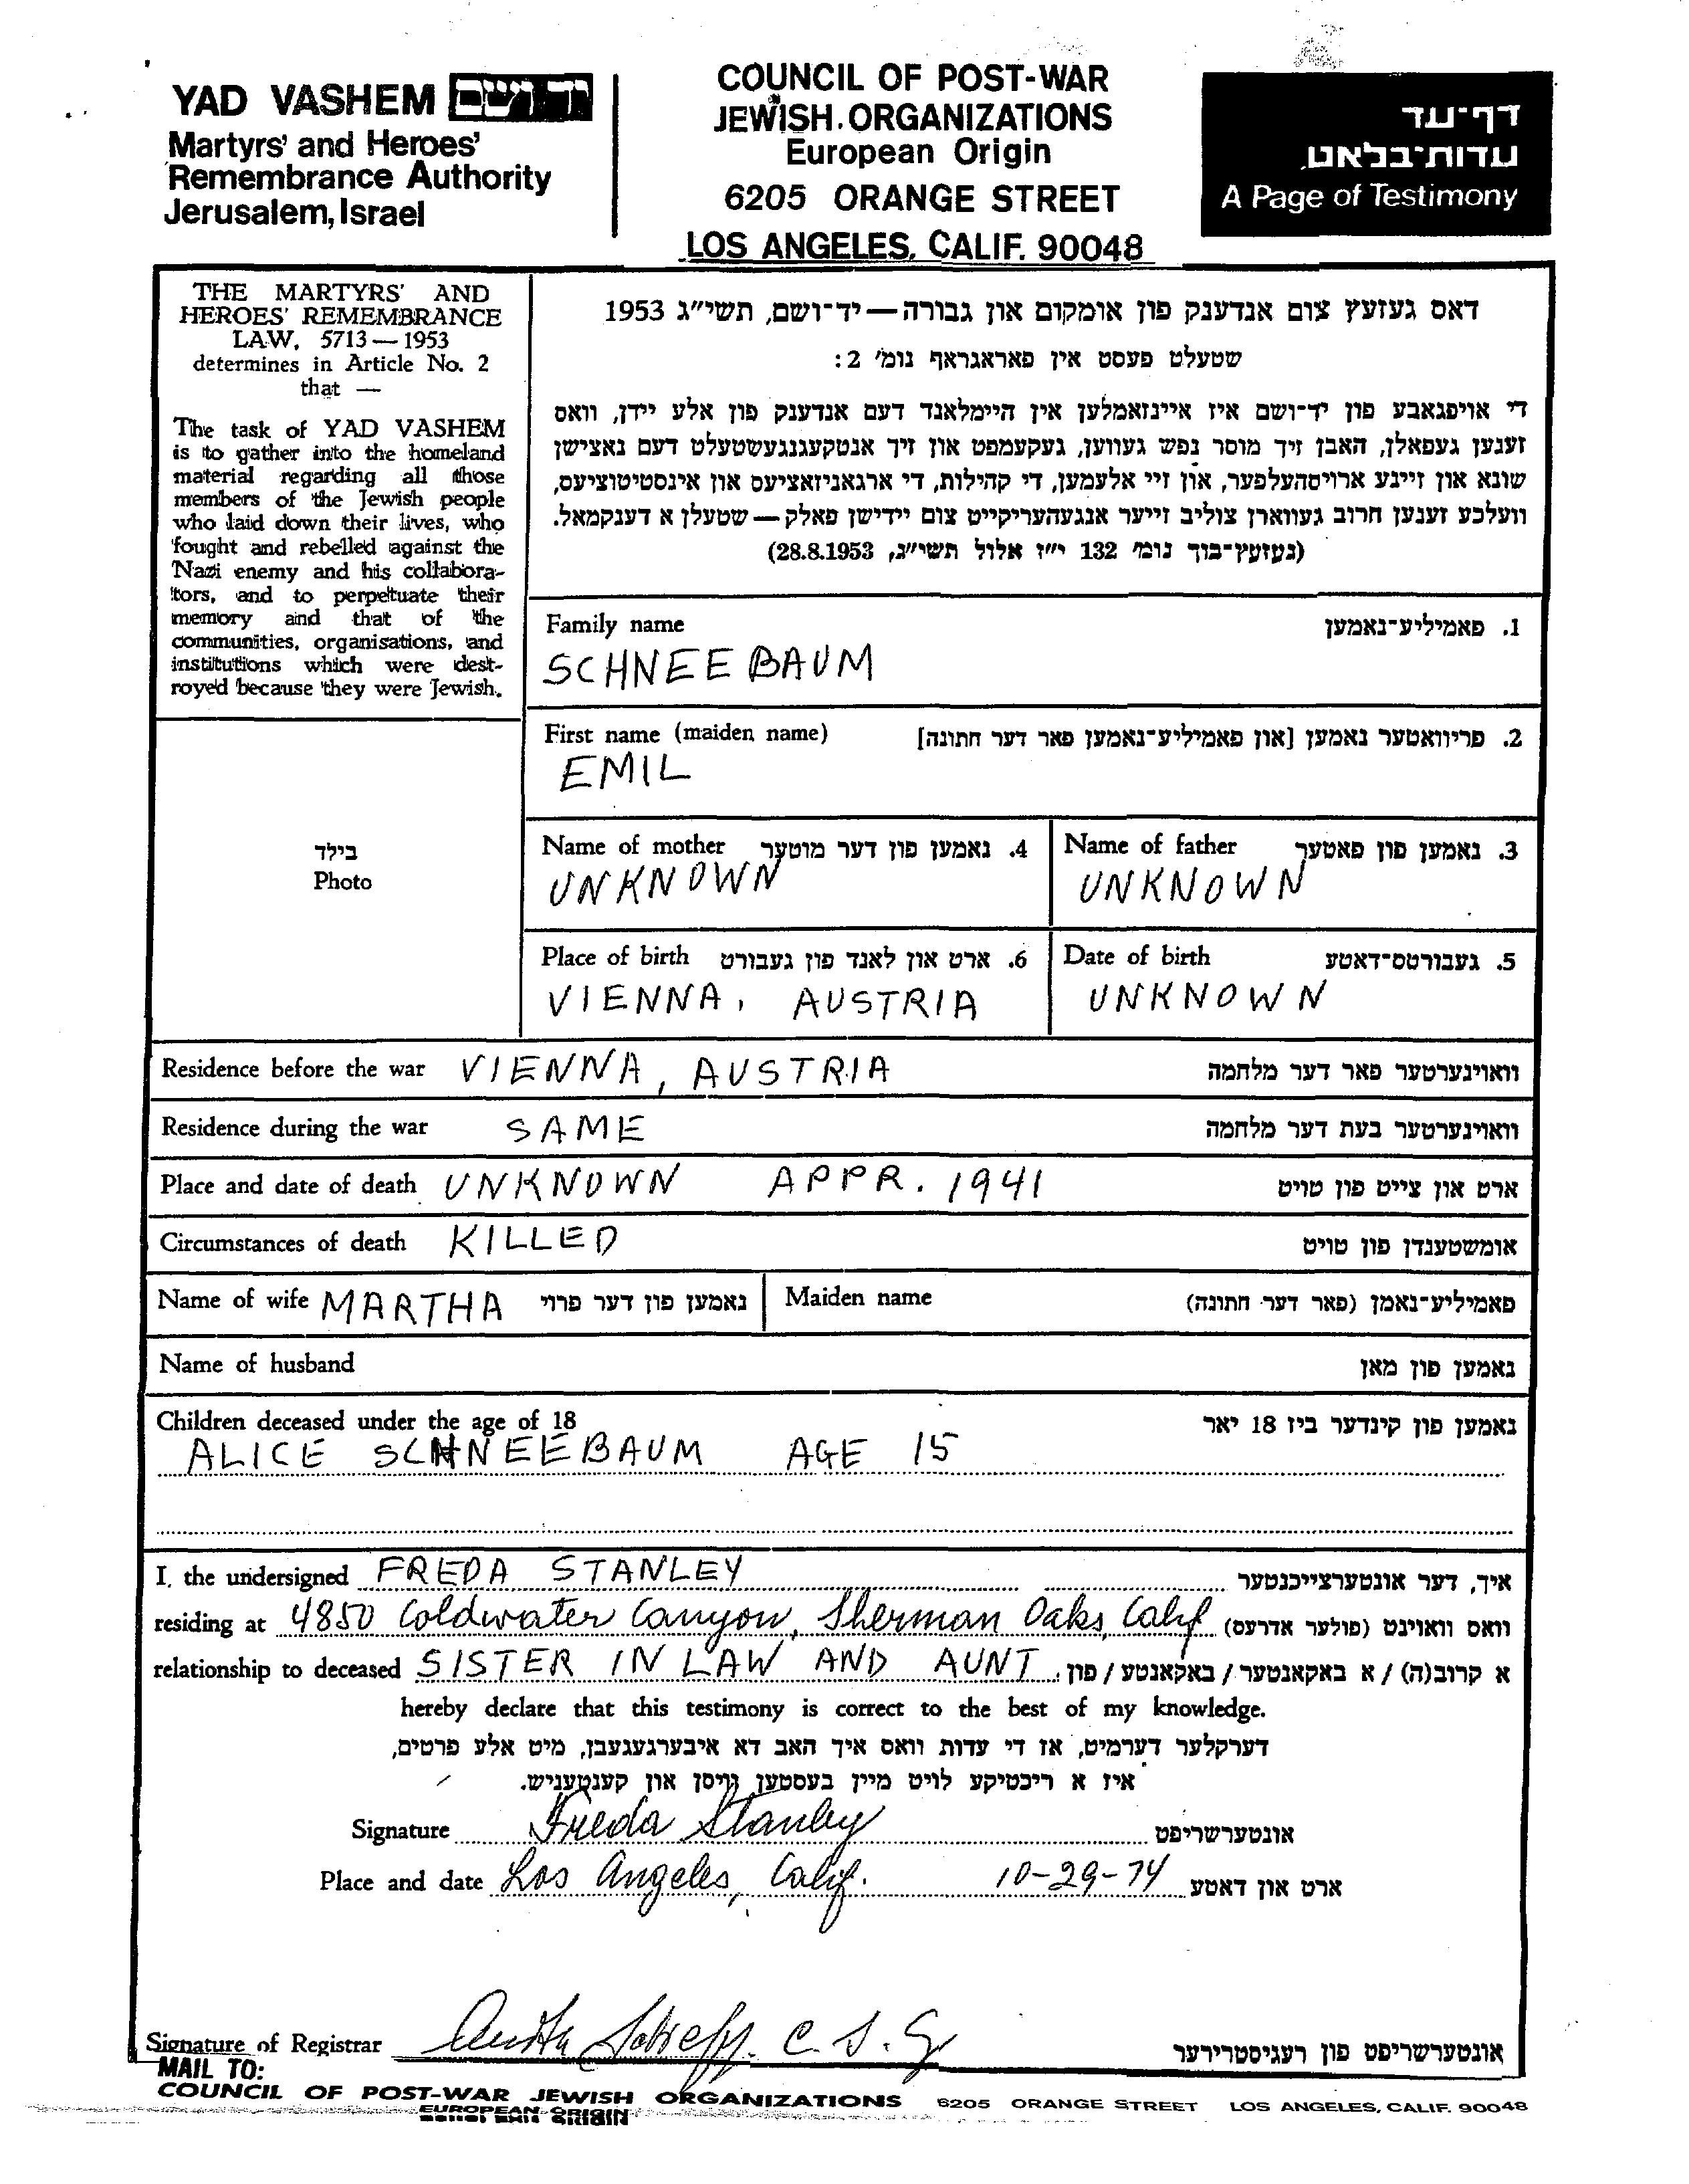 YAD VASHEM יד ושם
Martyrs' and Heroes'
Remembrance Authority
Jerusalem, Israel
COUNCIL OF POST-WAR
JEWISH ORGANIZATIONS
European Origin
6205 ORANGE STREET
LOS ANGELES, CALIF. 90048
דף-עד
עדות-בלאט
A Page of Testimony
THE MARTYRS' AND
HEROES' REMEMBRANCE
LAW, 5713—1953
determines in Article No. 2
that —
The task of YAD VASHEM
is to gather into the homeland
material regarding all those
members of the Jewish people
who laid down their lives, who
fought and rebelled against the
Nazi enemy and his collabora-
tors, and to perpetuate their
memory and that of the
communities, organisations, and
institutions which were dest-
royed because they were Jewish.
דאס געזעץ צום אנדענק פון אומקום און גבורה — יד-ושם, תשי"ג 1953
שטעלט פעסט אין פאראגראף נומ' 2:
די אויפגאבע פון יד-ושם איז איינזאמלען אין היימלאנד דעם אנדענק פון אלע יידן, וואס
זענען געפאלן, האבן זיך מוסר נפש געווען, געקעמפט און זיך אנטקעגנגעשטעלט דעם נאצישן
שונא און זיינע ארויסהעלפער, און זיי אלעמען, די קהילות, די ארגאניזאציעס און אינסטיטוציעס,
וועלכע זענען חרוב געווארן צוליב זייער אנגעהעריקייט צום יידישן פאלק — שטעלן א דענקמאל.
(געזעץ-בוך נומ' 132 י"ז אלול תשי"ג, 28.8.1953)
Family name 1. פאמיליע-נאמען
SCHNEEBAUM
First name (maiden name) 2. פריוואטער נאמען [און פאמיליע-נאמען פאר דער חתונה]
EMIL
בילד
Photo
Name of mother 4. נאמען פון דער מוטער
UNKNOWN
Name of father 3. נאמען פון פאטער
UNKNOWN
Place of birth 6. ארט און לאנד פון געבורט
VIENNA, AUSTRIA
Date of birth 5. געבורטס-דאטע
UNKNOWN
Residence before the war VIENNA, AUSTRIA וואוינערטער פאר דער מלחמה
Residence during the war SAME וואוינערטער בעת דער מלחמה
Place and date of death UNKNOWN APPR. 1941 ארט און צייט פון טויט
Circumstances of death KILLED אומשטענדן פון טויט
Name of wife MARTHA נאמען פון דער פרוי Maiden name פאמיליע-נאמן (פאר דער חתונה)
Name of husband נאמען פון מאן
Children deceased under the age of 18 נאמען פון קינדער ביז 18 יאר
ALICE SCHNEEBAUM AGE 15
I, the undersigned FREDA STANLEY איך, דער אונטערצייכנטער
residing at 4850 Coldwater Canyon, Sherman Oaks, Calif וואס וואוינט (פולער אדרעס)
relationship to deceased SISTER IN LAW AND AUNT א קרוב(ה) / א באקאנטער / באקאנטע / פון
hereby declare that this testimony is correct to the best of my knowledge.
דערקלער דערמיט, אז די עדות וואס איך האב דא איבערגעגעבן, מיט אלע פרטים,
איז א ריכטיקע לויט מיין בעסטען וויסן און קענטעניש.
Signature Freda Stanley אונטערשריפט
Place and date Los Angeles, Calif. 10-29-74 ארט און דאטע
Signature of Registrar C. S. אונטערשריפט פון רעגיסטרירער
MAIL TO:
COUNCIL OF POST-WAR JEWISH ORGANIZATIONS 6205 ORANGE STREET LOS ANGELES, CALIF. 90048
EUROPEAN ORIGIN